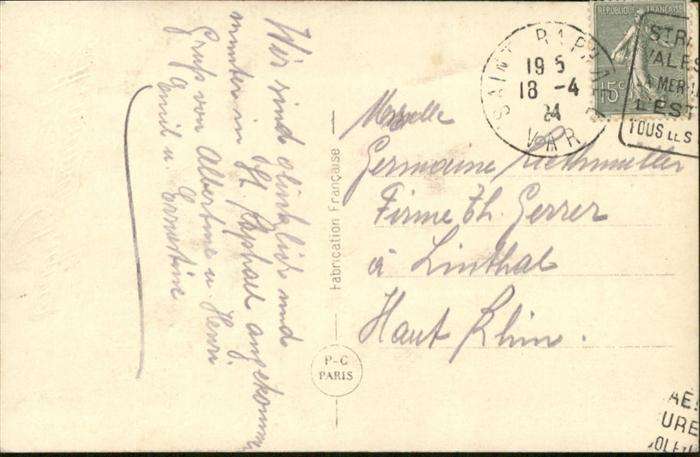 Wir sind glücklich und
munter in St. Raphael angekommen
Gruss von Albertine u. Henri
Emil u. Ernestine
Fabrication Française
P-C
PARIS
SAINT RAPHAEL
19 5
18 -4
24
VAR
REPUBLIQUE FRANÇAISE
15c
STR
VALES
MER
L'EST
TOUS LES
Germaine
Firme Th. Gerrer
à Linthal
Haut Rhin.
AE
URE
OLE